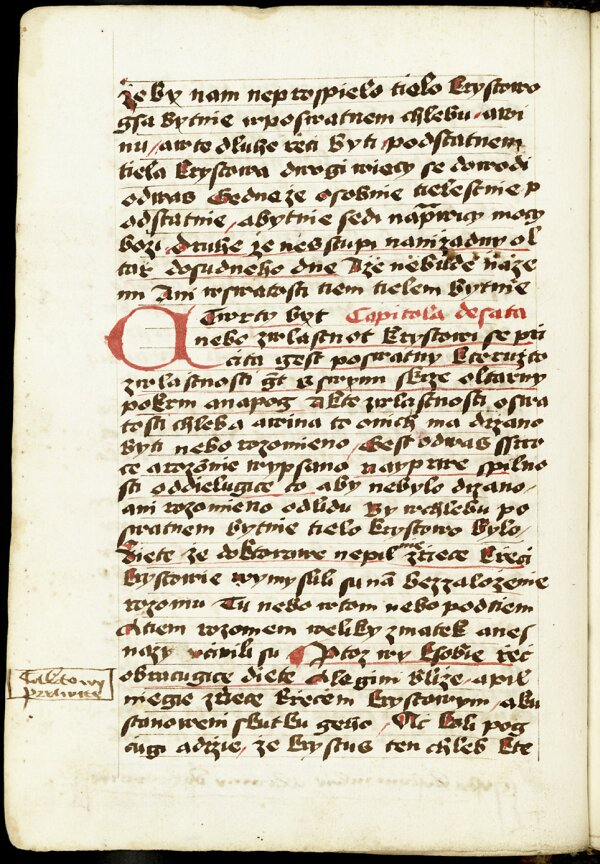 že by nam neprospielo tielo krystowo
gsa bytnie wposwatnem chlebu / a wi
nu / aw te dluhe rzeci byti / podstatnem
tiela krystowa drogi wiecy se dowodi
od was Gedne že osobnie tielestnie p
odstatnie / a bytnie sedi napravici mocy
bozi / druhe že nesstupi nanižadny ol
tarz do sudneho dne A že nebude na ze
mi Ani wswatosti tiem tielem bytnie
Cztwrty byt Capitola desata
nebo zwlastnot krystowi se pri
cita gest poswatny kteruzto
zwlastnosti gt w swym skrze oltarny
pokrm a napog A kte zwlastnosti oswa
tosti chleba a wina to o nich ma drzano
byti nebo rozomieno / Gest od was ssiro
ce a rozomie wypsano nayprwe s pilno
sti oddielugice to aby nebylo drzano /
ani rozomieno od lidu By wchlebu po
swatnem bytnie tielo krystowo bylo /
diete / že doktorowe nepilnie zriece krzeci
krystowie wymyslili su na bez zalozenie
rozomu Tu nebo w tom nebo pod tiem
A tiem rozomem weliky zmatek a nes
nazy vcinili su A toz wy k sobie rzec
obracugice diete Ale gini blize / a pil
niegie zriece krzecem krystowym / a k u
stanoweni skutku geho / Vic koli pog
cugi a drzie / že krystus ten chleb kte
Taktowy